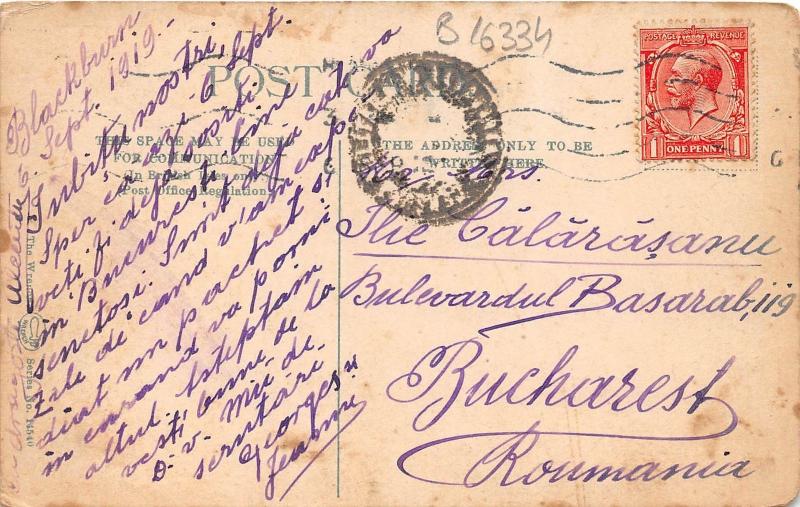 B 16334
POST CARD
THIS SPACE MAY BE USED
FOR COMMUNICATION
(In British Isles only
(Post Office Regulation)
THE ADDRESS ONLY TO BE
WRITTEN HERE.
POSTAGE REVENUE
1 ONE PENNY 1
Blackburn
6. Sept. 1919.-
Iubitii nostri,
Sper ca azi 6 Sept.
veti fi deja sositi
in Bucuresti bine
senetosi. Sunt cateva
zile de cand v'am expe-
diat un pachet si
in curand va porni
altul. Asteptam
vesti bune de la
D-v. Mii de
serutari.
Georges u
Jeanne
Mr. Mrs.
Ilie Călărășanu
Bulevardul Basarab, 119
Bucharest
Roumania
The Wrench
Series No. 14540